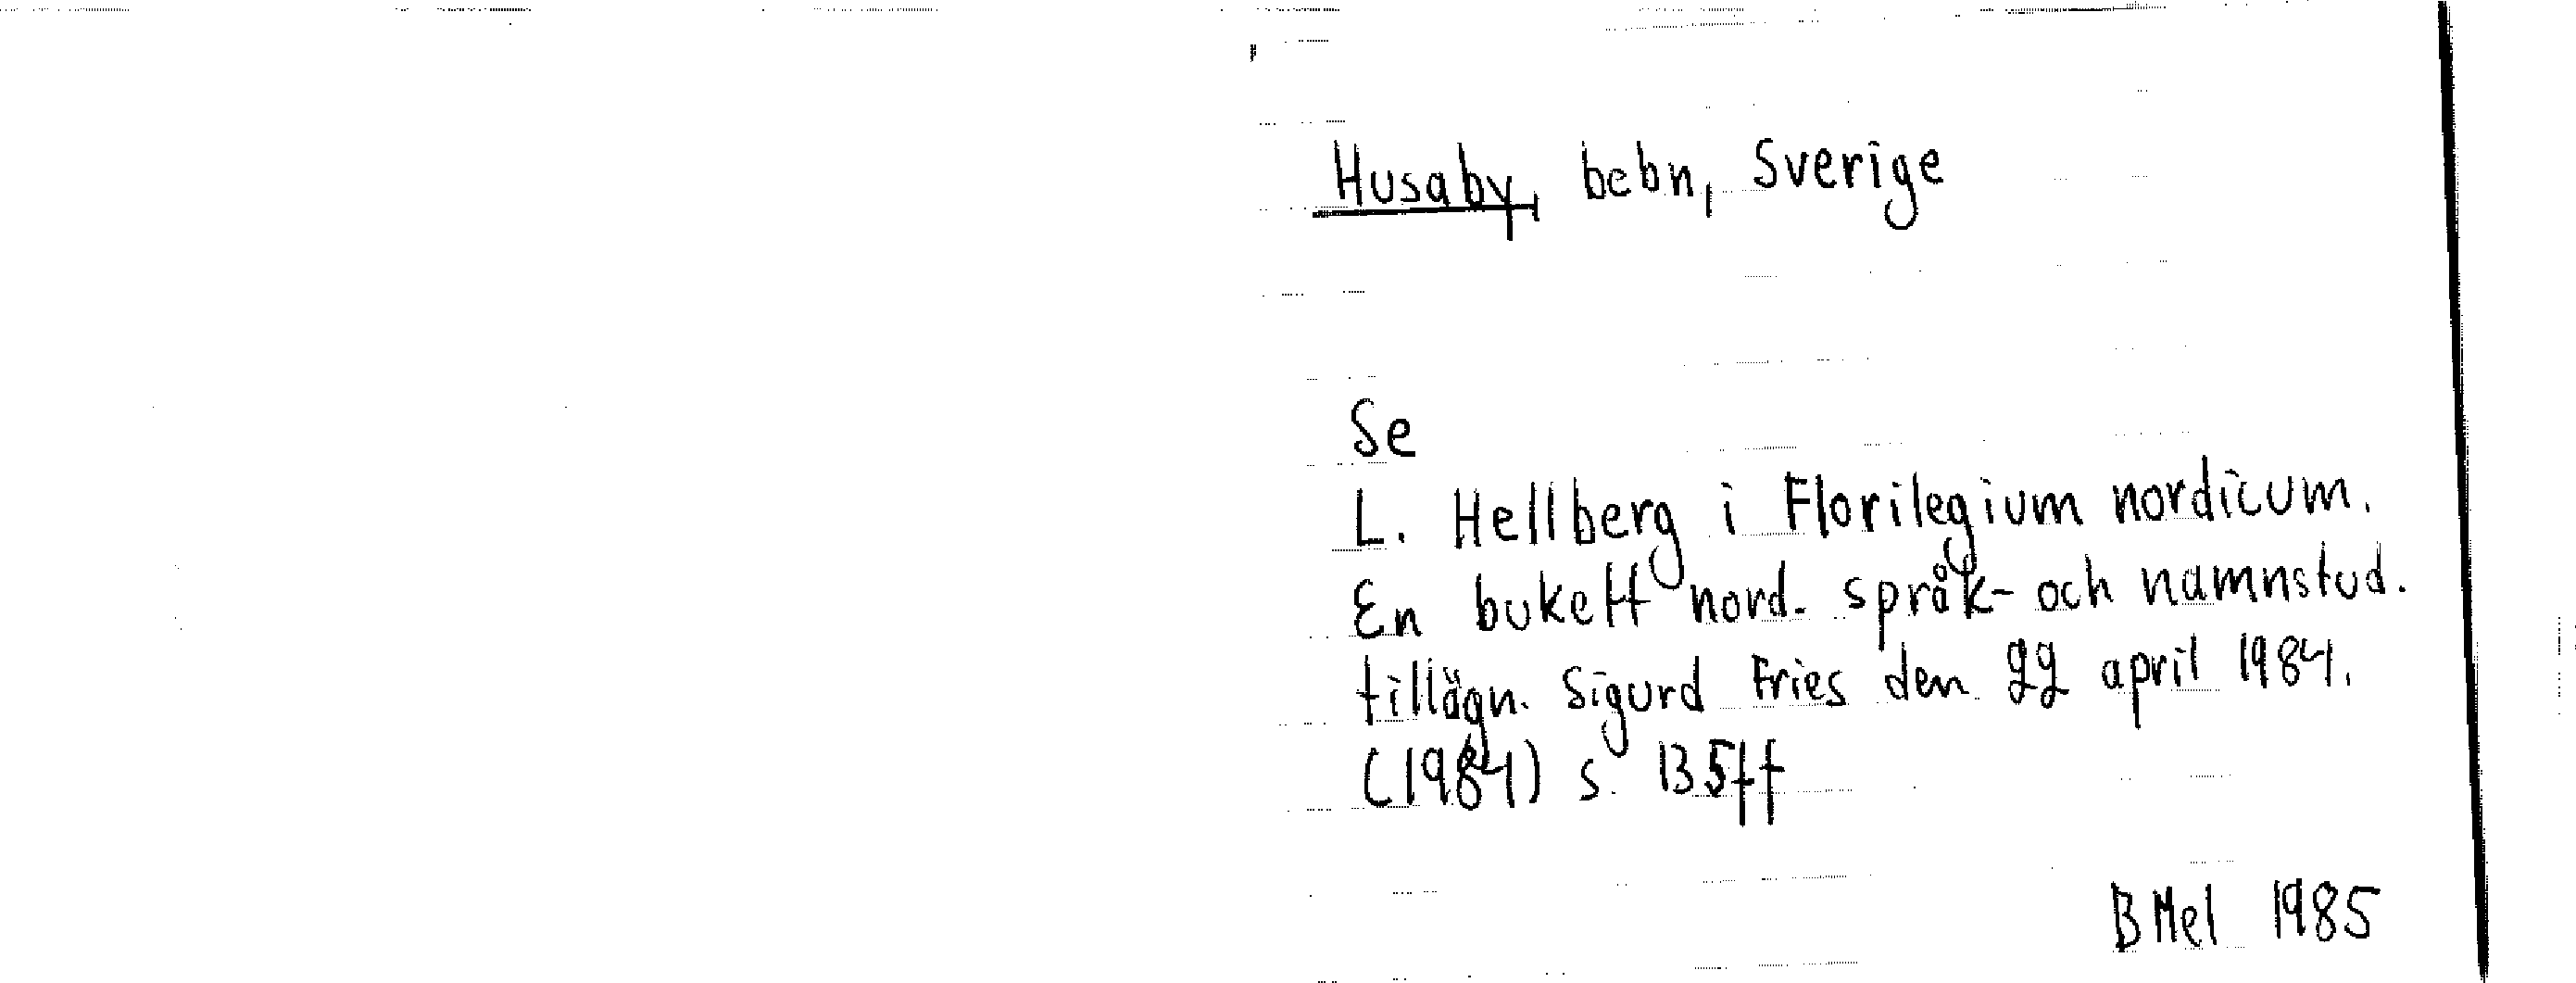 Husaby, bebn, Sverige
Se
L. Hellberg i Florilegium nordicum.
En bukett nord. språk- och namnstud.
tillägn. Sigurd Fries den 22 april 1984.
(1984) s. 135ff
B Mel 1985